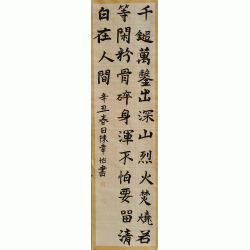 千鎚萬鑿出深山烈火焚燒若
等閑粉骨碎身渾不怕要留清
白在人間 辛丑春日陳韋怡書